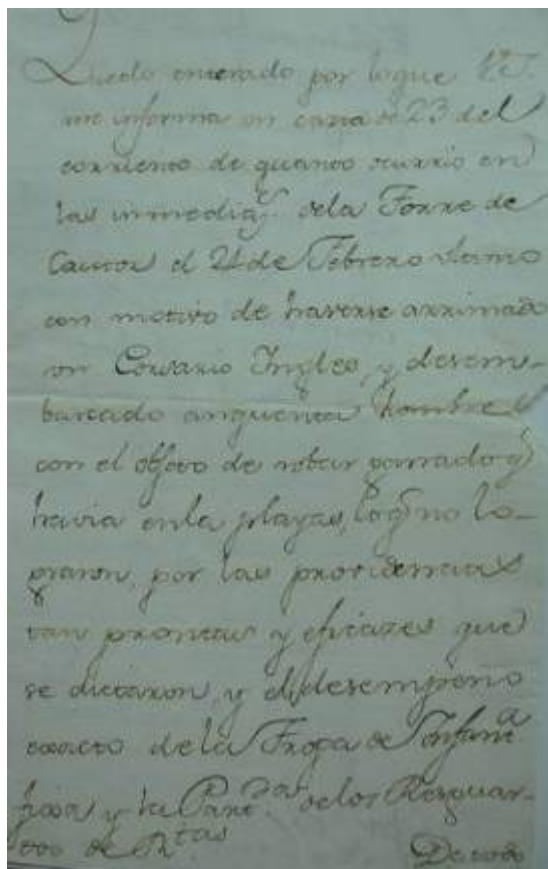 Quedo enterado por loque V.S.
me informa en carta de 23 del
corriente de quanto ocurrio en
las inmediaz.s dela Torre de
el 21 de Febrero ultimo
con motivo de haverse arrimado
un Corsario Ingles, y desem-
barcado cinquenta hombres
con el objeto de robar ganado q.e
havia enla playa, loq.e no lo-
graron, por las providencias
tan prontas y eficazes que
se dictaron, y el desempeño
exacto de la Tropa de Infant.a
fixa y la Part.das delos Resguar-
dos de R.tas
De todo